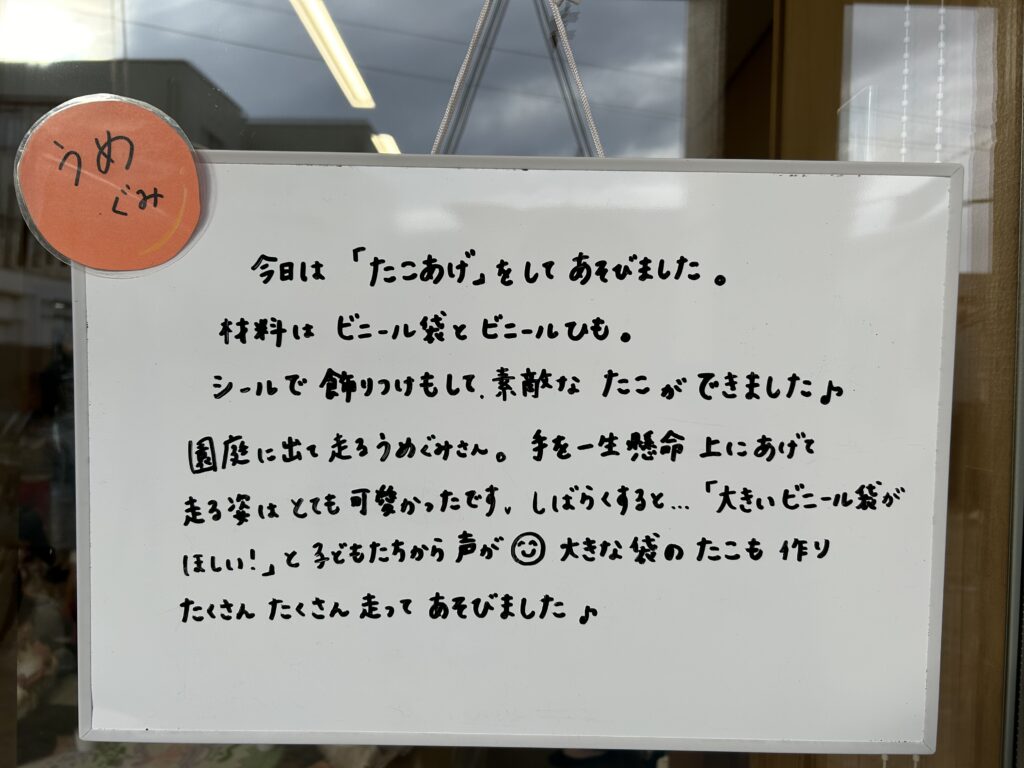 うめ
ぐみ
今日は「たこあげ」をして あそびました。
材料は ビニール袋と ビニールひも。
シールで 飾りつけもして、素敵な たこが できました♪
園庭に出て 走るうめぐみさん。手を一生懸命 上にあげて
走る姿は とても可愛かったです。しばらくすると…「大きいビニール袋が
ほしい!」と 子どもたちから 声が☺ 大きな袋の たこも 作り
たくさん たくさん 走って あそびました♪